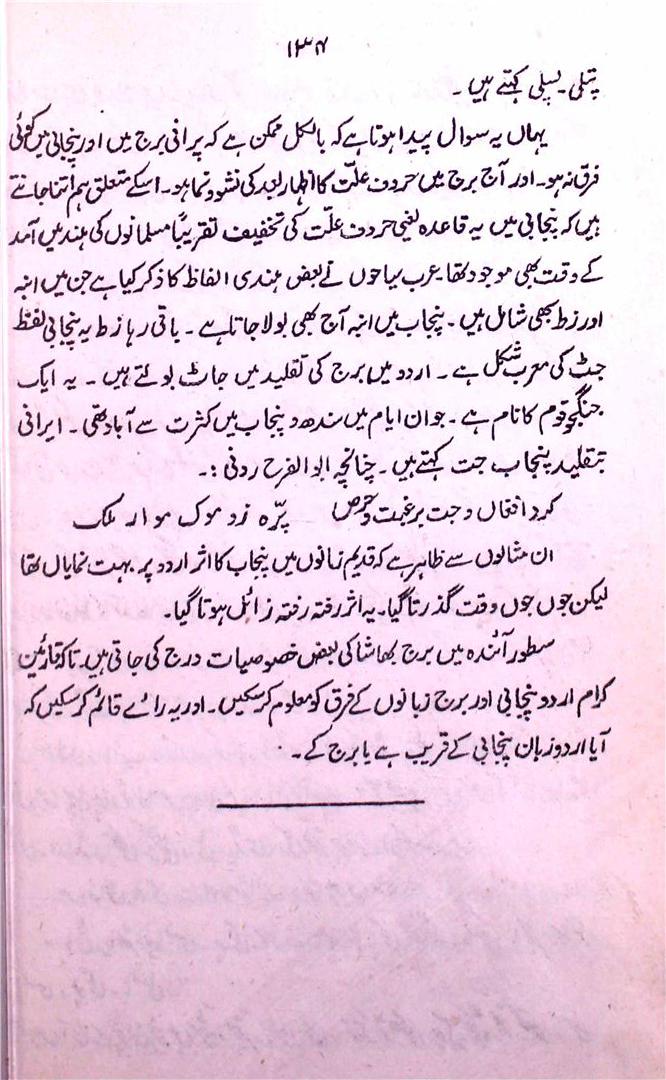 ۱۳۴
پتلی ۔ پسلی کہتے ہیں ۔
یہاں یہ سوال پیدا ہوتا ہے کہ بالکل ممکن ہے کہ پرانی برج میں اور پنجابی میں کوئی
فرق نہ ہو۔ اور آج برج میں حروف علّت کا اظہار بعد کی نشوونما ہو۔ اسکے متعلق ہم اتنا جانتے
ہیں کہ پنجابی میں یہ قاعدہ یعنی حروف علّت کی تخفیف تقریباً مسلمانوں کی ہند میں آمد
کے وقت بھی موجود تھا۔ عرب سیاحوں نے بعض ہندی الفاظ کا ذکر کیا ہے جن میں انبہ
اور زط بھی شامل ہیں ۔ پنجاب میں انبہ آج بھی بولا جاتا ہے ۔ باقی رہا زط یہ پنجابی لفظ
جٹ کی معرب شکل ہے ۔ اردو میں برج کی تقلید میں جاٹ بولتے ہیں ۔ یہ ایک
جنگجو قوم کا نام ہے ۔ جو ان ایام میں سندھ و پنجاب میں کثرت سے آباد تھی ۔ ایرانی
بتقلید پنجاب جت کہتے ہیں ۔ چنانچہ ابو الفرح رونی :۔
کرد افغاں و جت برغبت و حرص پرّہ زد موک موار ملک
ان مثالوں سے ظاہر ہے کہ قدیم زمانوں میں پنجاب کا اثر اردو پر بہت نمایاں تھا
لیکن جوں جوں وقت گذرتا گیا۔ یہ اثر رفتہ رفتہ زائل ہوتا گیا۔
سطور آئندہ میں برج بھاشا کی بعض خصوصیات درج کی جاتی ہیں۔ تاکہ قارئین
کرام اردو پنجابی اور برج زبانوں کے فرق کو معلوم کر سکیں۔ اور یہ رائے قائم کر سکیں کہ
آیا اردو زبان پنجابی کے قریب ہے یا برج کے ۔